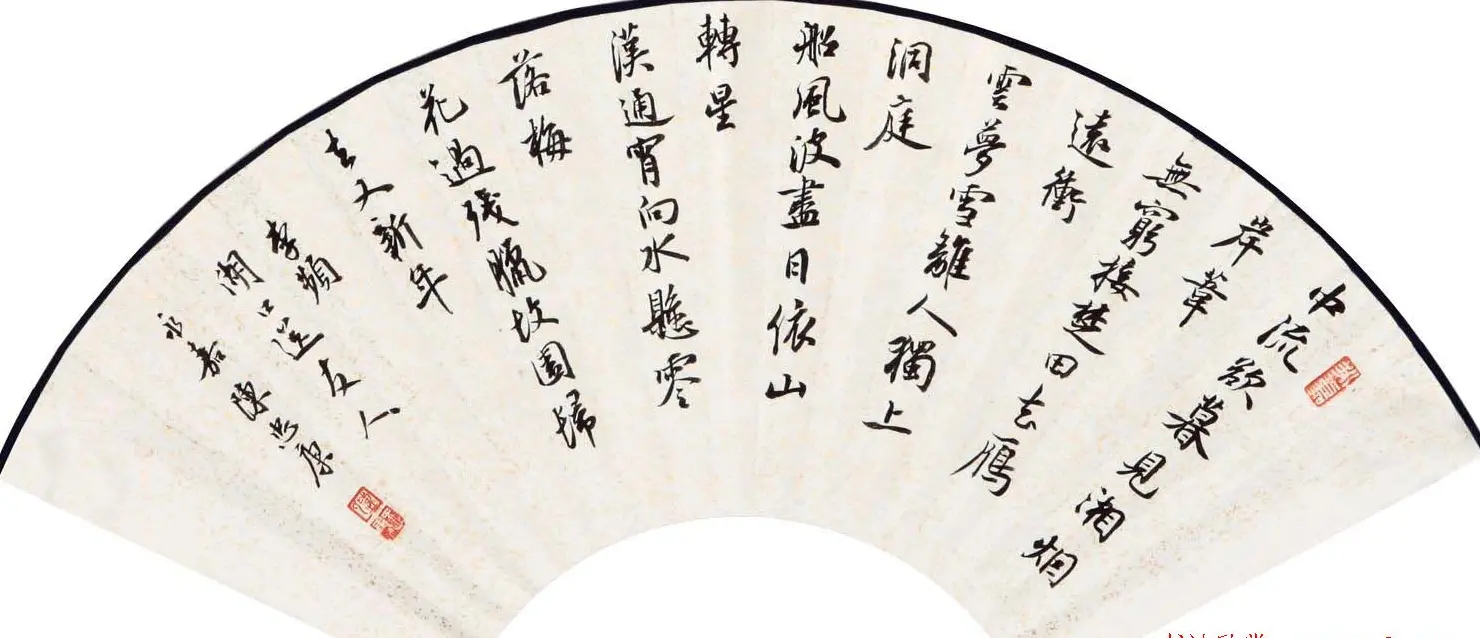 中流欲暮見湘烟
岸葦
無窮接楚田去雁
遠衝
雲夢雪離人獨上
洞庭
船風波盡日依山
轉星
漢通宵向水懸零
落梅
花過殘臘故園歸
去又新年
李頻湖口送友人
永嘉陳忠康